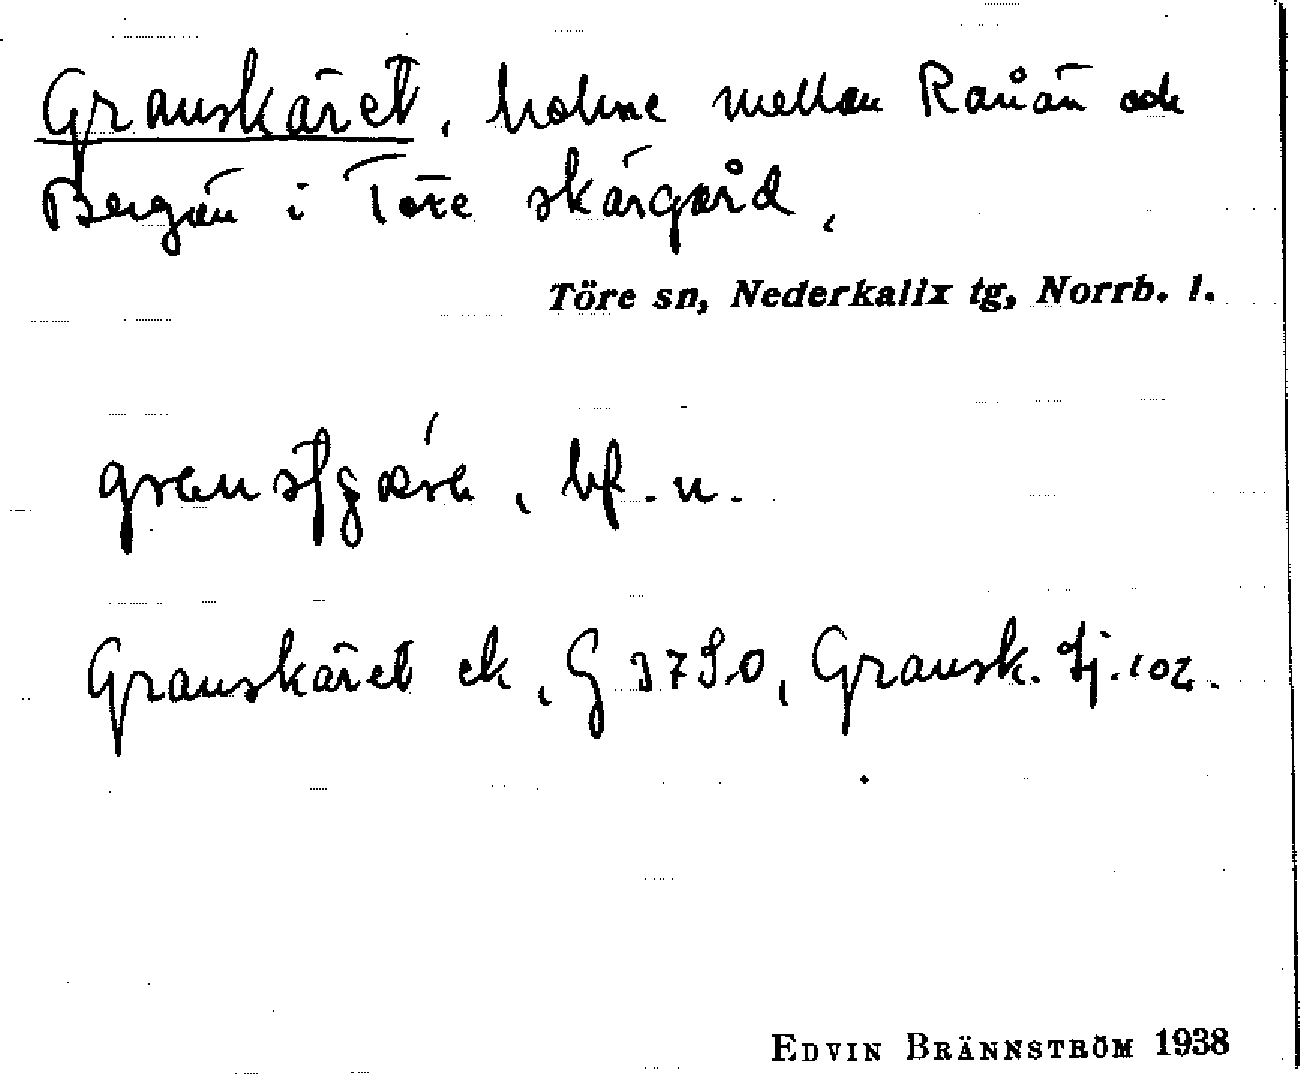 Granskäret, holme mellan Rånön och
Bergön i Töre skärgård.
Töre sn, Nederkalix tg, Norrb. l.
bf. n.
Granskäret ek, G 3750, Gransk. Sj. 102.
EDVIN BRÄNNSTRÖM 1938